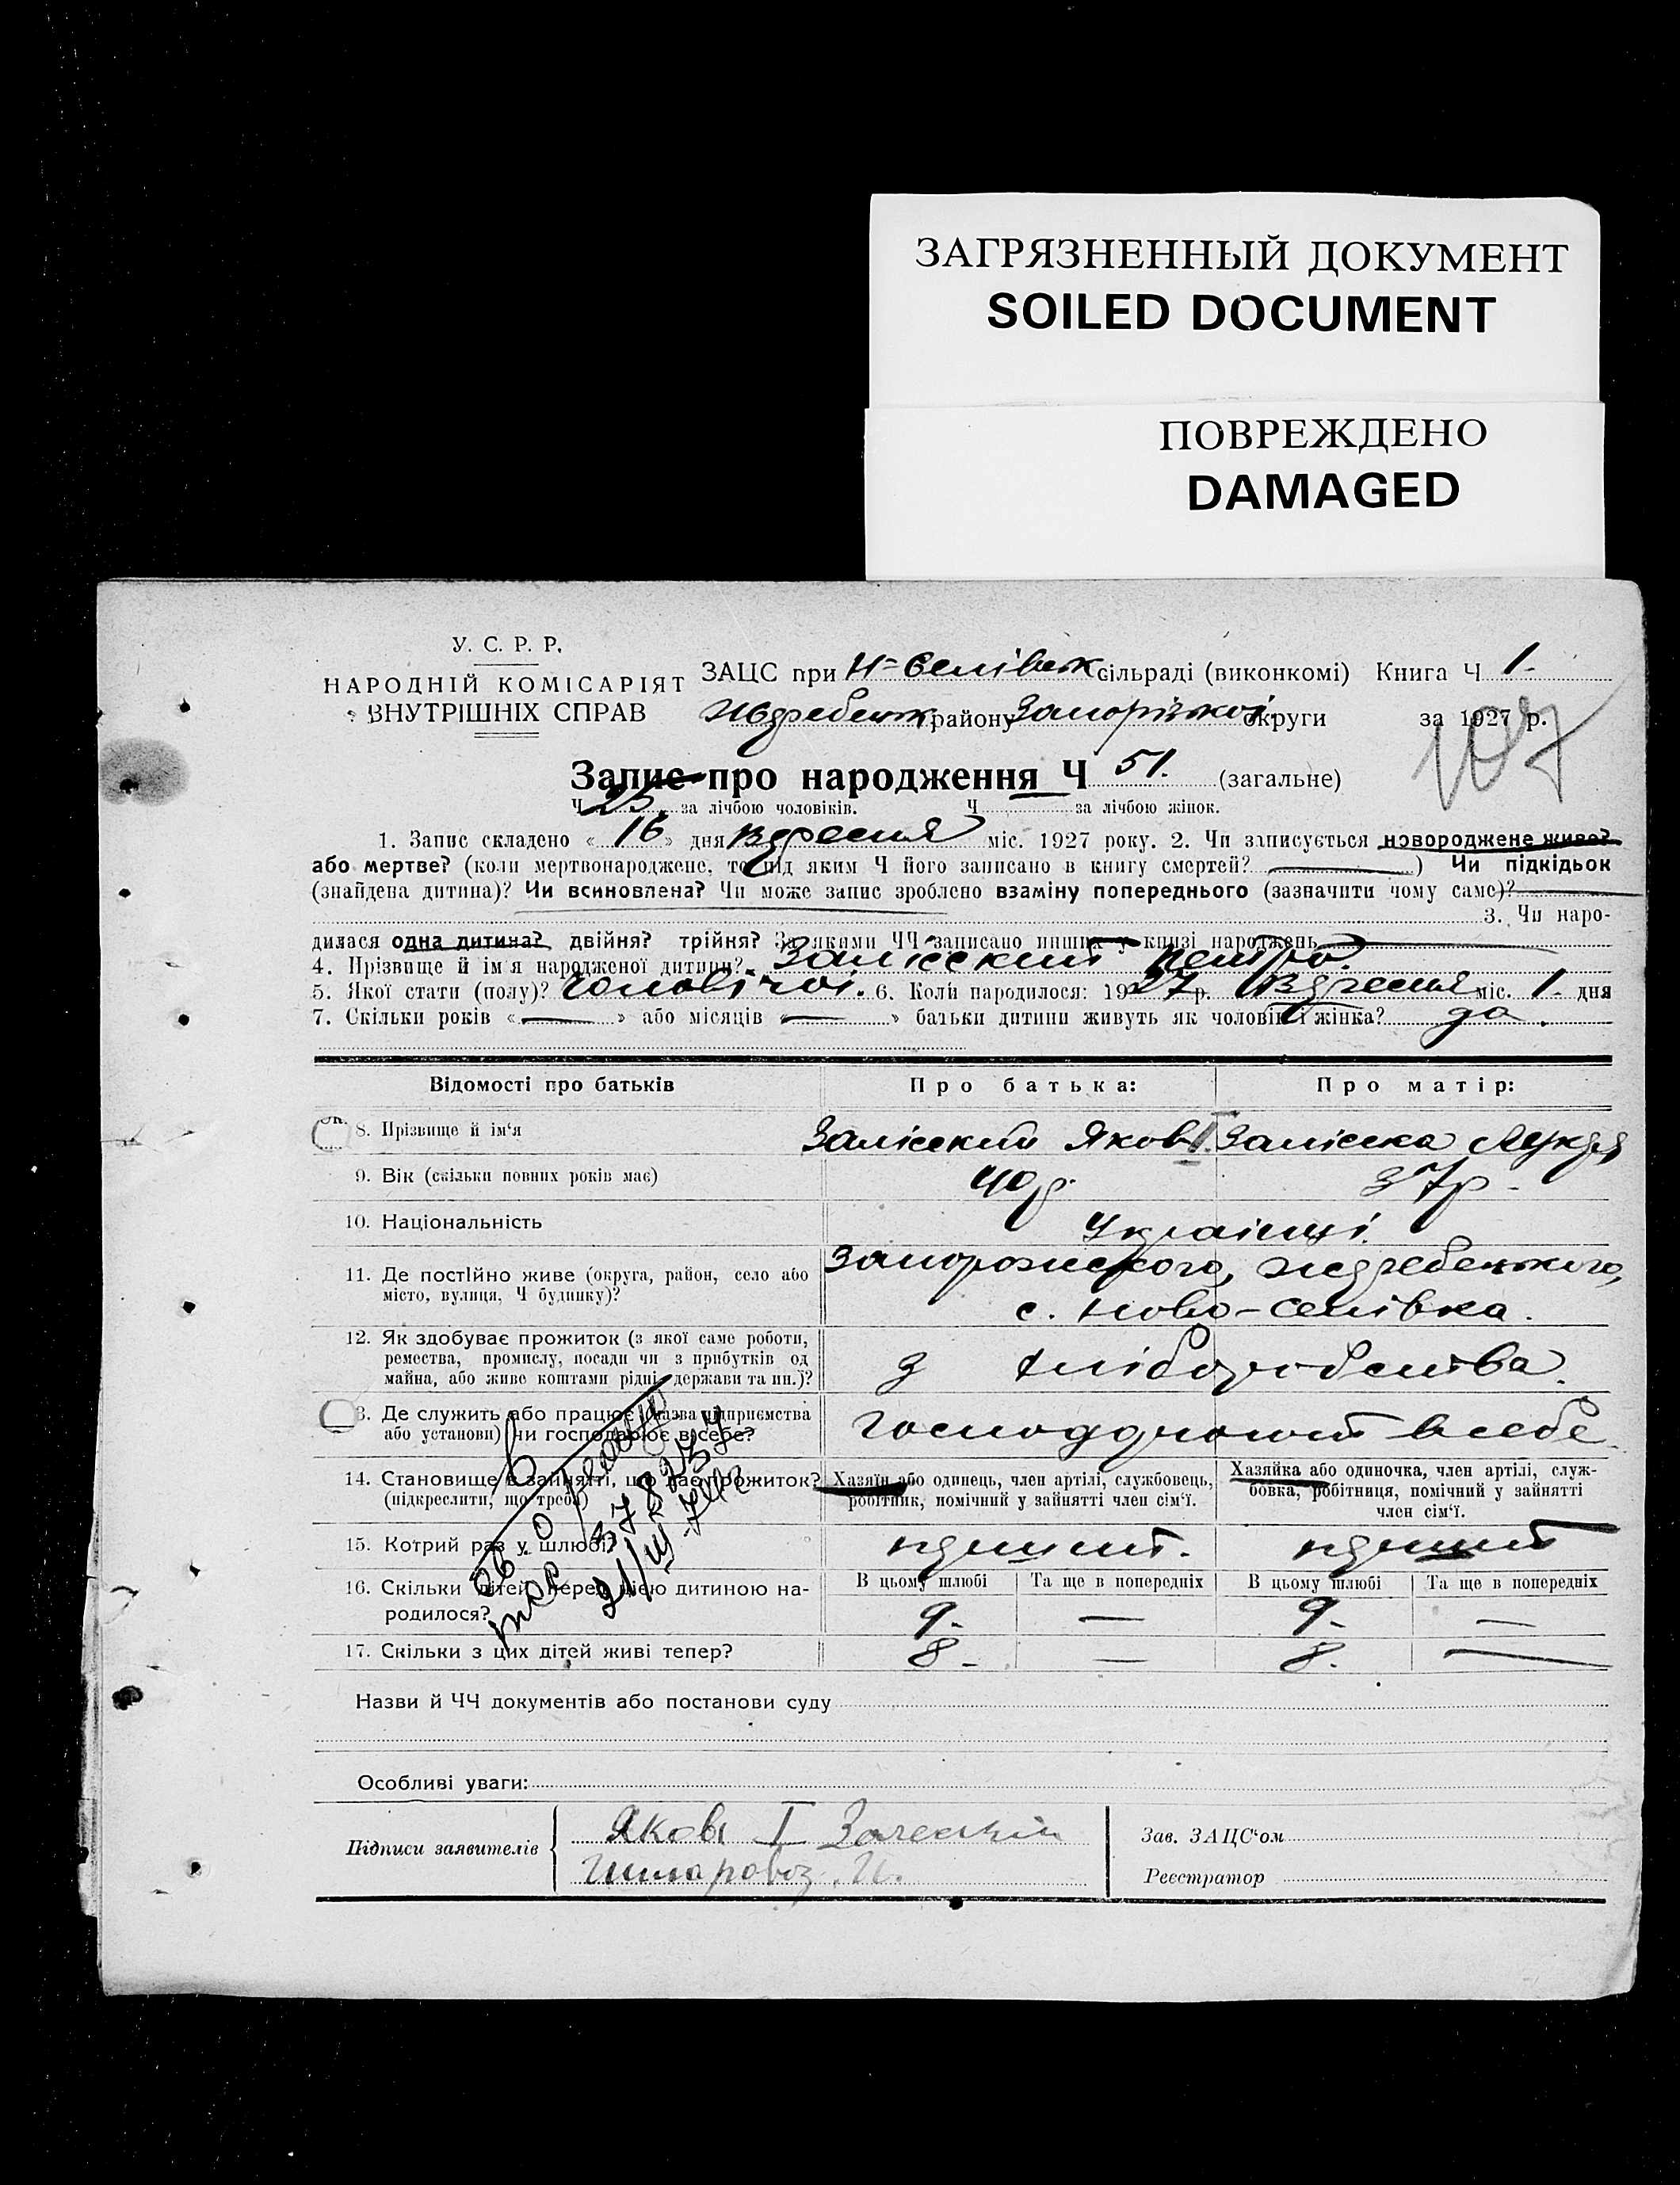 ЗАГРЯЗНЕННЫЙ ДОКУМЕНТ
SOILED DOCUMENT
ПОВРЕЖДЕНО
DAMAGED
У. С. Р. Р.
НАРОДНІЙ КОМІСАРІЯТ
ВНУТРІШНІХ СПРАВ
ЗАЦС при Н-Селівськ сільраді (виконкомі) Книга Ч 1.
Жеребецьк району Запорізької округи за 1927 р.
107
Запис про народження Ч 51. (загальне)
Ч 25 за лічбою чоловіків. Ч за лічбою жінок.
1. Запис складено « 16 » дня вересня міс. 1927 року. 2. Чи записується новороджене живе?
або мертве? (коли мертвонароджене, то під яким Ч його записано в книгу смертей? ) Чи підкідьок
(знайдена дитина)? Чи всиновлена? Чи може запис зроблено взаміну попереднього (зазначити чому саме)?
3. Чи наро-
дилася одна дитина? двійня? трійня? За якими ЧЧ записано инших у книзі народжень
4. Прізвище й ім'я народженої дитини? Заліский Петро.
5. Якої стати (полу)? чоловічої. 6. Коли народилося: 1927 р. вересня міс. 1 дня
7. Скільки років « » або місяців « » батьки дитини живуть як чоловік і жінка? да.
Відомості про батьків Про батька: Про матір:
8. Прізвище й ім'я Заліский Яков I. Заліска
9. Вік (скільки повних років має) 40 р. 37 р.
10. Національність Українці.
11. Де постійно живе (округа, район, село або
місто, вулиця, Ч будинку)?
Запорожского, Жеребецького,
с. Ново-Селівка.
12. Як здобуває прожиток (з якої саме роботи,
ремества, промислу, посади чи з прибутків од
майна, або живе коштами рідні, держави та ин.)?
з хліборобства.
13. Де служить або працює (назва підприємства
або установи) чи господарює в себе?
господдрюют в себе
14. Становище в зайнятті, що дає прожиток?
(підкреслити, що треба)
Хазяїн або одинець, член артілі, службовець,
робітник, помічний у зайнятті член сім'ї.
Хазяйка або одиночка, член артілі, служ-
бовка, робітниця, помічний у зайнятті
член сім'ї.
15. Котрий раз у шлюбі? перший. перший
16. Скільки дітей перед цією дитиною на-
родилося?
В цьому шлюбі Та ще в попередніх В цьому шлюбі Та ще в попередніх
9. 9.
17. Скільки з цих дітей живі тепер? 8 8.
Назви й ЧЧ документів або постанови суду
Особливі уваги:
Підписи заявителів
Яков I
Зав. ЗАЦС'ом
Реєстратор